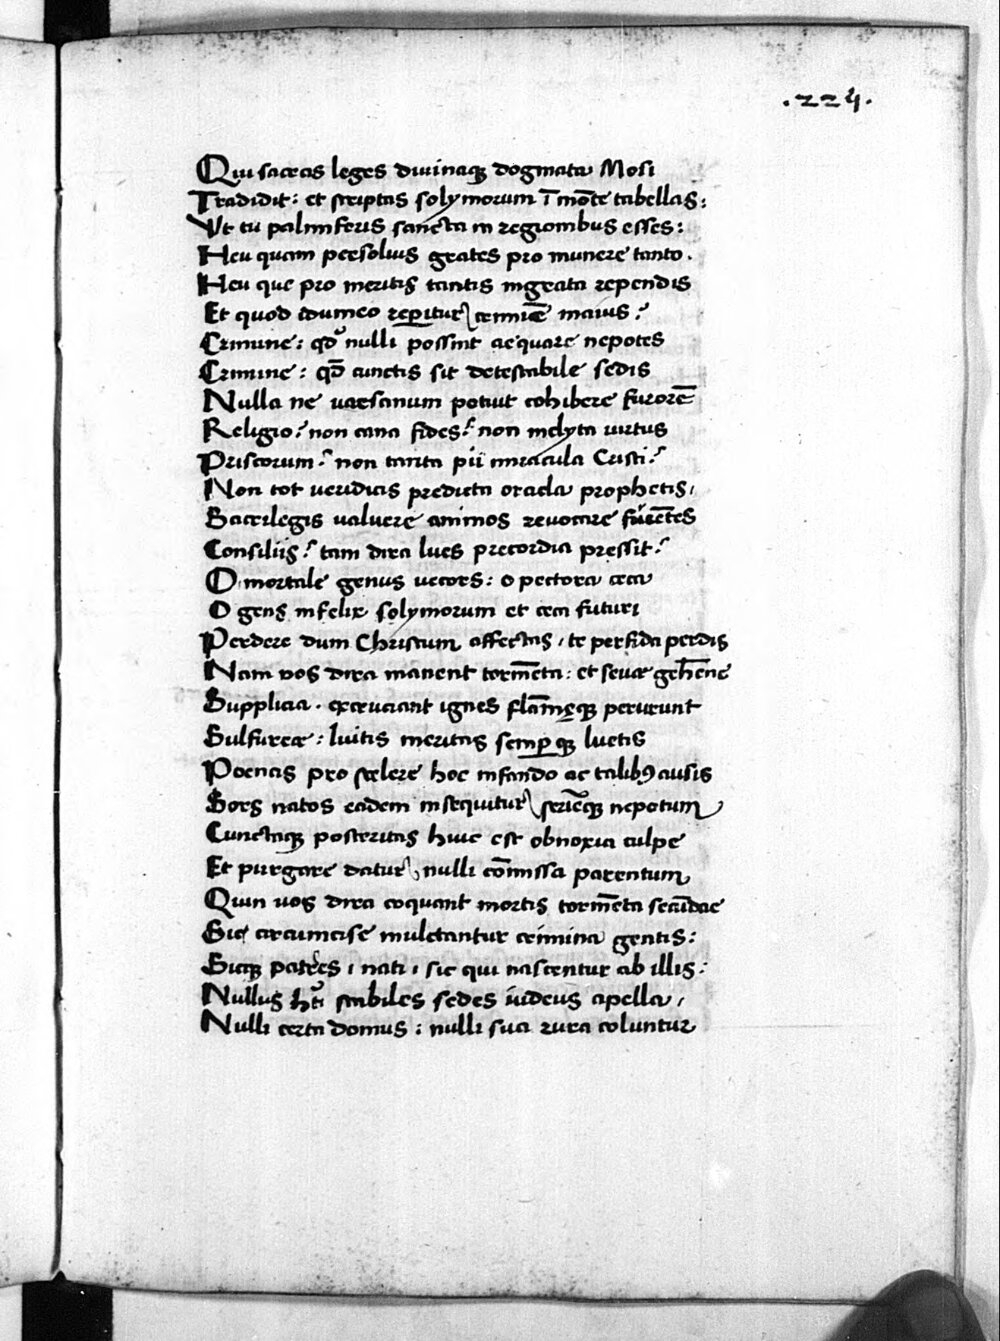 .224.
Qui sacras leges diuinaqꝫ dogmata Mosi
Tradidit: et scriptas solymorum ī mōte tabellas:
Vt tu palmiferis sancta in regionibus esses:
Heu quam persoluis grates pro munere tanto.
Heu que pro meritis tantis ingrata rependis
Et quod idumeo reꝑitur crimīe maius?
Crimine: qd' nulli possint aequare nepotes
Crimine: qd̄ cunctis sit detestabile sedis
Nulla ne uaesanum potuit cohibere furorē
Religio? non cana fides? non inclyta uirtus
Priscorum? non tanta pii miracula Cristi?
Non tot ueridicis predicta oracla prophetis,
Sacrilegis ualuere animos reuocare furētes
Consiliis? tam dira lues precordia pressit?
O mortale genus uecors: o pectora ceca
O gens infelix solymorum et ceca futuri
Perdere dum Christum affectas, te perfida perdis
Nam uos dira manent tormēta: et seuae gehēne
Supplicia. excruciant ignes flāmęqꝫ perurunt
Sulfureae: luitis meritas semꝑ qꝫ luetis
Poenas pro scelere hoc infando ac talibꝰ ausis
Sors natos eadem insequitur seriēqꝫ nepotum
Cunctaqꝫ posteritas huic est obnoxia culpe
Et purgare datur nulli cōmissa parentum
Quin uos dira coquant mortis tormēta secūdae
Sic circumcise mulctantur crimina gentis:
Sicqꝫ patres, nati, sic qui nascentur ab illis:
Nullus hꝫ stabiles sedes iudeus apella,
Nulli certa domus: nulli sua rura coluntur